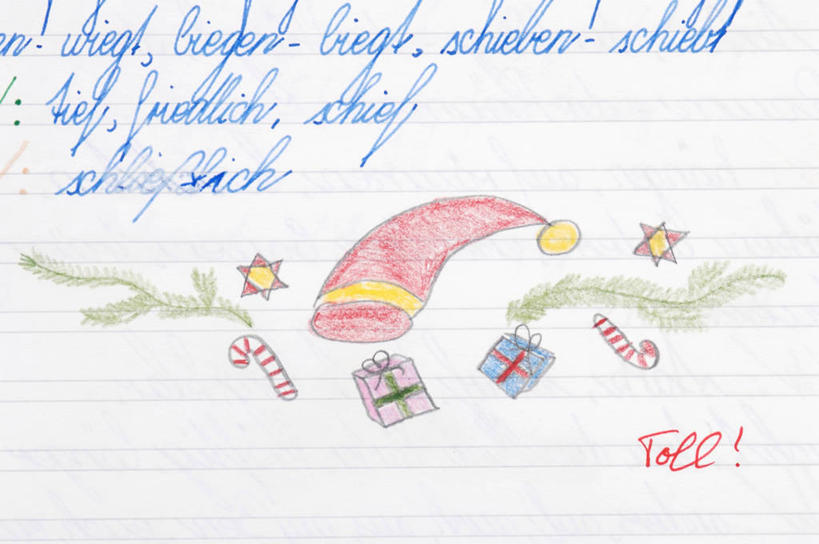 en! wiegt, biegen- biegt, schieben- schiebt
: tief, friedlich, schief
: schließlich
Toll!